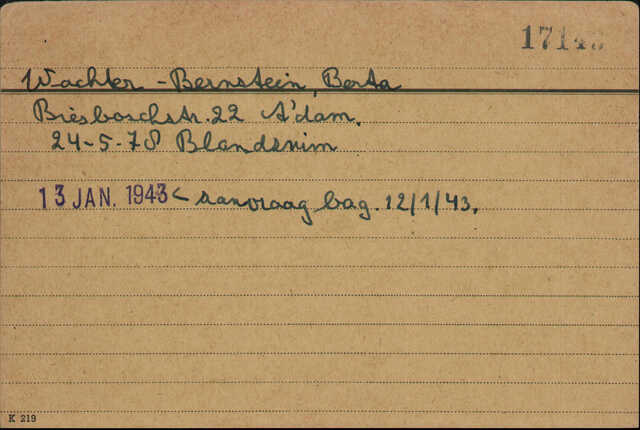 17143
Wachter - Bernstein, Berta
Biesboschstr. 22 A'dam.
24-5-78 Blandsrim
13 JAN. 1943 < aanvraag bag. 12/1/43.
K 219